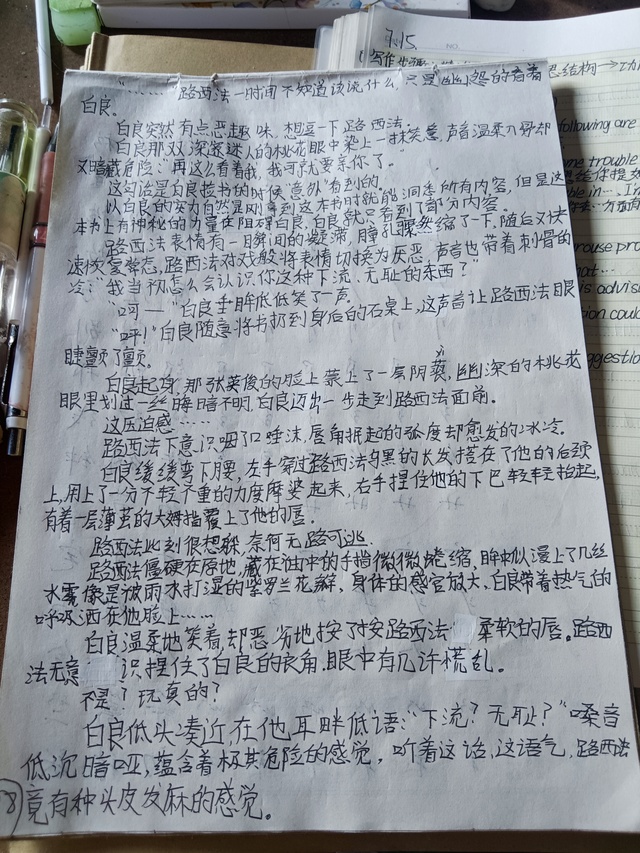 7.15.
NO.
"……"路西法一时间不知道该说什么,只是幽怨的看着
白良。
白良突然有点恶趣味,想逗一下路西法。
白良那双深邃迷人的桃花眼中染上一抹笑意,声音温柔
又暗藏危险:"再这么看着我,我可就要亲你了。"
这句话是白良捡书的时候意外看到的。
以白良的实力自然是刚拿到这本书时就能洞悉所有内容,但是这
本书上有神秘的力量在阻碍白良,白良就只看到了部分内容。
路西法表情有一瞬间的凝滞,瞳孔骤然缩了一下,随后又快
速恢复常态,路西法对戏般将表情切换为厌恶,声音也带着刺骨的
冷:"我当初怎么会认识你这种下流、无耻的东西?"
"呵—"白良垂眸低低笑了一声。
"呯!"白良随意将书扔到身后的石桌上,这声音让路西法眼
睫颤了颤。
白良起身,那张英俊的脸上蒙上了一层阴翳,幽深的桃花
眼里划过一丝晦暗不明,白良迈出一步走到路西法面前。
这压迫感……
路西法下意识咽了口唾沫,唇角抿起的弧度却愈发的冰冷。
白良缓缓弯下腰,左手穿过路西法乌黑的长发搭在了他的后颈
上,用上了一分不轻不重的力度摩娑起来,右手捏住他的下巴轻轻抬起,
有着一层薄茧的大姆指覆上了他的唇。
路西法此刻很想躲,奈何无路可逃。
路西法僵硬在原地,藏在袖中的手指微微蜷缩,眸中似漫上了几丝
水雾像是被雨水打湿的紫罗兰花瓣,身体的感官放大,白良带着热气的
呼吸洒在他脸上……
白良温柔地笑着,却恶劣地按了按路西法柔软的唇。路西
法无意识捏住了白良的衣角.眼中有几许慌乱。
不是?玩真的?
白良低头凑近,在他耳畔低语:"下流?无耻?"嗓音
低沉暗哑,蕴含着极其危险的感觉,听着这话,这语气,路西法
竟有种头皮发麻的感觉。
8
结构→
following are
some trouble
is advis
tion could